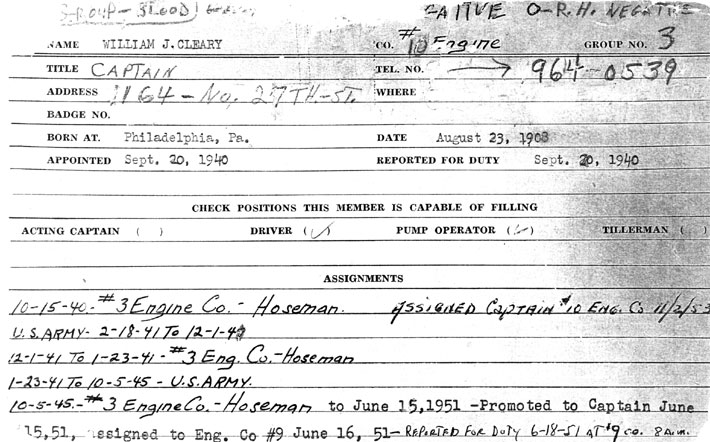 3-GROUP - BLOOD
O-R.H. NEGATIVE
NAME WILLIAM J. CLEARY CO. #10 Engine GROUP NO. 3
TITLE CAPTAIN TEL. NO. → 964-0539
ADDRESS 1164-No. 27TH-ST. WHERE
BADGE NO.
BORN AT. Philadelphia, Pa. DATE August 23, 1908
APPOINTED Sept. 20, 1940 REPORTED FOR DUTY Sept. 20, 1940
CHECK POSITIONS THIS MEMBER IS CAPABLE OF FILLING
ACTING CAPTAIN ( ) DRIVER (✓) PUMP OPERATOR (✓) TILLERMAN ( )
ASSIGNMENTS
10-15-40-#3 Engine Co.- Hoseman. ASSIGNED CAPTAIN #10 ENG. Co 11/2/53
U.S. ARMY- 2-18-41 To 12-1-4
12-1-41 To 1-23-41 - #3 Eng. Co.-Hoseman
1-23-41 To 10-5-45 - U.S. ARMY.
10-5-45.-#3 Engine Co.- Hoseman to June 15,1951 -Promoted to Captain June
15,51, assigned to Eng. Co #9 June 16, 51- REPORTED FOR DUTY 6-18-51 AT #9 co. 8 a.m.